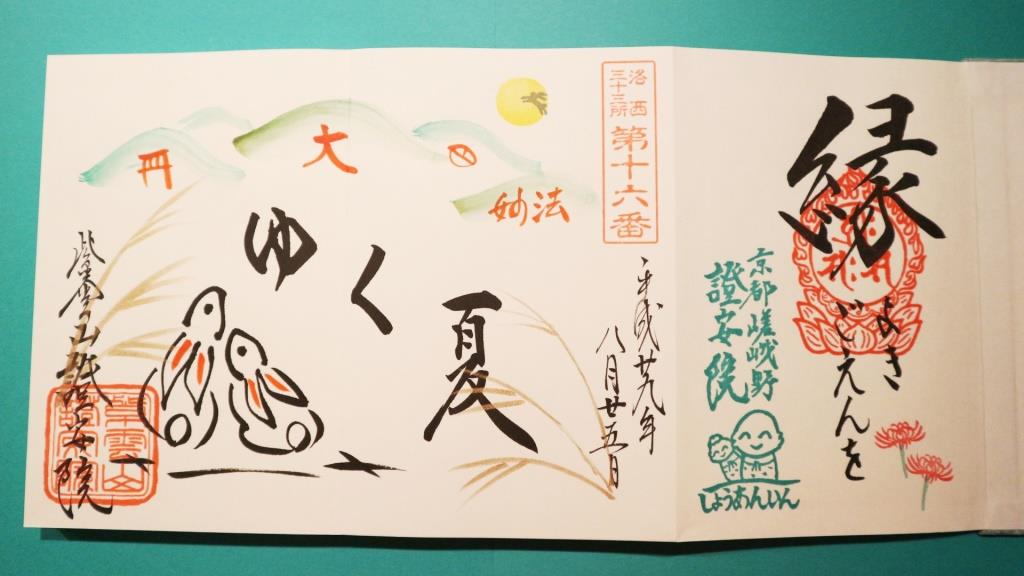 縁
よき
ごえんを
京都嵯峨野
證安院
しょうあんいん
洛西
三十三所
第十六番
平成廿九年
八月廿五日
妙法
大
ゆく夏
紫雲山 證安院